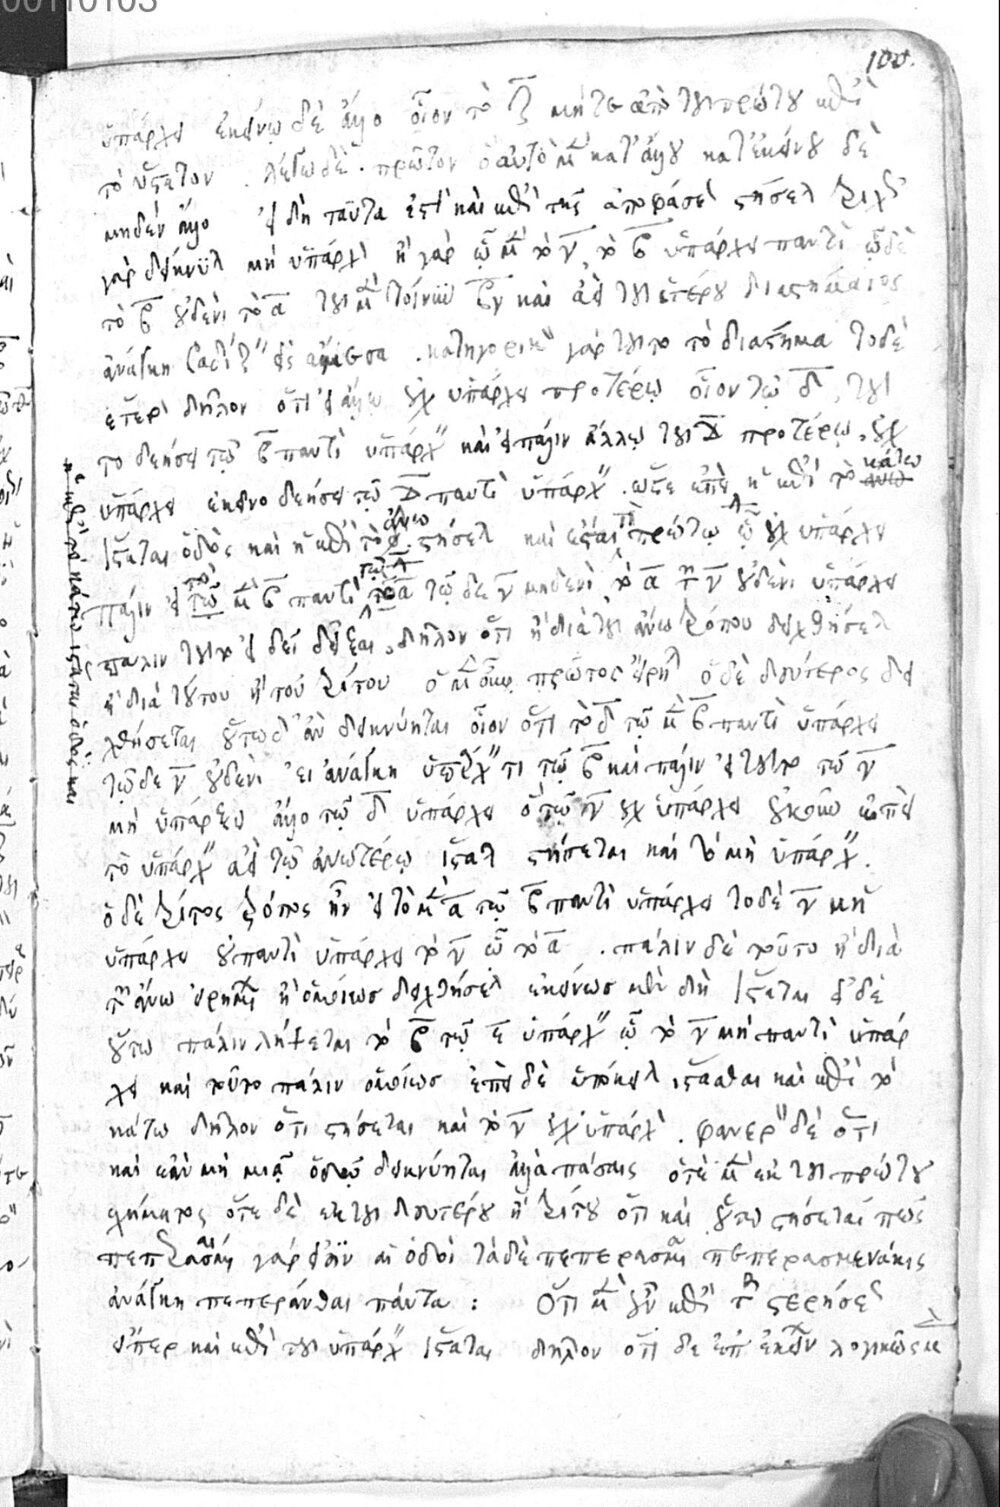 ὑπάρχει ἐκείνῳ δὲ ἄλλο οἷον τὸ ζ μήτε ἀπὸ τοῦ πρώτου ἐπὶ
τὸ ὕστατον . λέγω δὲ . πρῶτον ὃ αὐτὸ μὲν κατ' ἄλλου κατ' ἐκείνου δὲ
μηδὲν ἄλλο εἰ δὴ ταῦτα ἐστὶ καὶ ἐπὶ τῆς ἀποφάσεως στήσεται τριχῶς
γὰρ δείκνυται μὴ ὑπάρχον ἢ γὰρ ᾧ μὲν τὸ γ, τὸ β ὑπάρχει παντὶ ᾧ δὲ
τὸ β οὐδενὶ τὸ α τοῦ μὲν τοίνυν βγ καὶ ἀεὶ τοῦ ἑτέρου διαστήματος
ἀνάγκη βαδίζειν εἰς ἄμεσα . κατηγορικὸν γὰρ τοῦτο τὸ διάστημα τὸ δὲ
ἕτερον δῆλον ὅτι εἰ ἄλλῳ οὐχ ὑπάρχει προτέρῳ οἷον τῷ δ, τοῦ
το δεήσει τῷ β παντὶ ὑπάρχειν καὶ εἰ πάλιν ἄλλῳ τοῦ δ προτέρῳ οὐχ
ὑπάρχει ἐκεῖνο δεήσει τῷ δ παντὶ ὑπάρχειν . ὥστε ἐπεὶ ἡ ἐπὶ τὸ ἄνω κάτω
ἵσταται ὁδὸς καὶ ἡ ἐπὶ τὸ ἄνω στήσεται καὶ ἔσται τι πρώτῳ ᾧ οὐχ ὑπάρχει
πάλιν εἰ τὸ μὲν β παντὶ τῷ α τῷ δὲ γ μηδενὶ τὸ α τῶν γ οὐδενὶ ὑπάρχει
πάλιν τοῦτο εἰ δεῖ δεῖξαι, δῆλον ὅτι ἢ διὰ τοῦ ἄνω τρόπου δειχθήσεται
ἢ διὰ τούτου ἢ τοῦ τρίτου ὁ μὲν οὖν πρῶτος εἴρηται ὁ δὲ δεύτερος δει
χθήσεται οὕτω δ' ἂν δεικνύηται οἷον ὅτι τὸ δ τῷ μὲν β παντὶ ὑπάρχει
τῷ δὲ γ οὐδενὶ εἰ ἀνάγκη ὑπάρχειν τι τῷ β καὶ πάλιν εἰ τοῦτο τῷ γ
μὴ ὑπάρξει ἄλλο τῷ δ ὑπάρχει ὃ τῷ γ οὐχ ὑπάρχει οὐκοῦν ἐπεὶ
τὸ ὑπάρχειν ἀεὶ τῷ ἀνωτέρῳ ἵσταται στήσεται καὶ τὸ μὴ ὑπάρχειν.
ὁ δὲ τρίτος τρόπος ἦν εἰ τὸ μὲν α τῷ β παντὶ ὑπάρχει τὸ δὲ γ μὴ
ὑπάρχει οὐ παντὶ ὑπάρχει τὸ γ ᾧ τὸ α . πάλιν δὲ τοῦτο ἢ διὰ
τῶν ἄνω εἰρημένων ἢ ὁμοίως δειχθήσεται ἐκείνως μὲν δὴ ἵσταται εἰ δὲ
οὕτω πάλιν λήψεται τὸ β τῷ ε ὑπάρχειν ᾧ τὸ γ μὴ παντὶ ὑπάρ
χει καὶ τοῦτο πάλιν ὁμοίως ἐπεὶ δὲ ὑπόκειται ἵστασθαι καὶ ἐπὶ τὸ
κάτω δῆλον ὅτι στήσεται καὶ τὸ γ οὐχ ὑπάρχον . φανερὸν δὲ ὅτι
καὶ ἐὰν μὴ μιᾷ ὁδῷ δεικνύηται ἀλλὰ πάσαις ὁτὲ μὲν ἐκ τοῦ πρώτου
σχήματος ὁτὲ δὲ ἐκ τοῦ δευτέρου ἢ τρίτου ὅτι καὶ οὕτω στήσεται πεπε
πεπερασμέναι γάρ εἰσιν αἱ ὁδοὶ τὰ δὲ πεπερασμένα πεπερασμενάκις
ἀνάγκη πεπεράνθαι πάντα : Ὅτι μὲν οὖν ἐπὶ τῆς στερήσεως
εἴπερ καὶ ἐπὶ τοῦ ὑπάρχειν ἵσταται δῆλον ὅτι δὲ ἐπ' ἐκείνων λογικῶς μὲν
ἐπὶ τὸ κάτω ἵσταται ὁδὸς καὶ